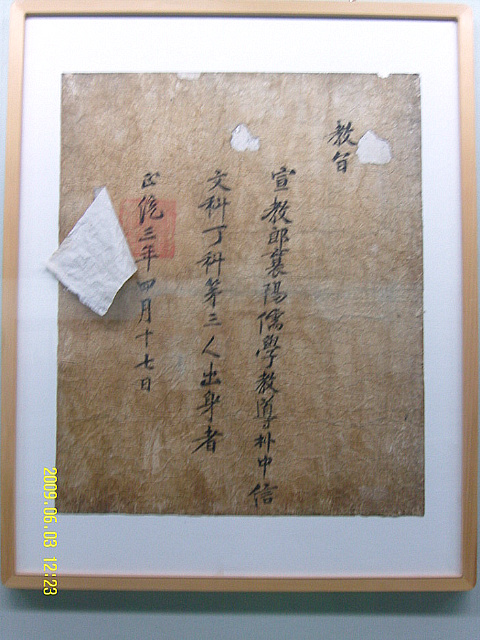 教旨
宣教郎襄陽儒學教導朴中信
文科丁科第三人出身者
正統三年四月十七日
2009.06.03 12:23